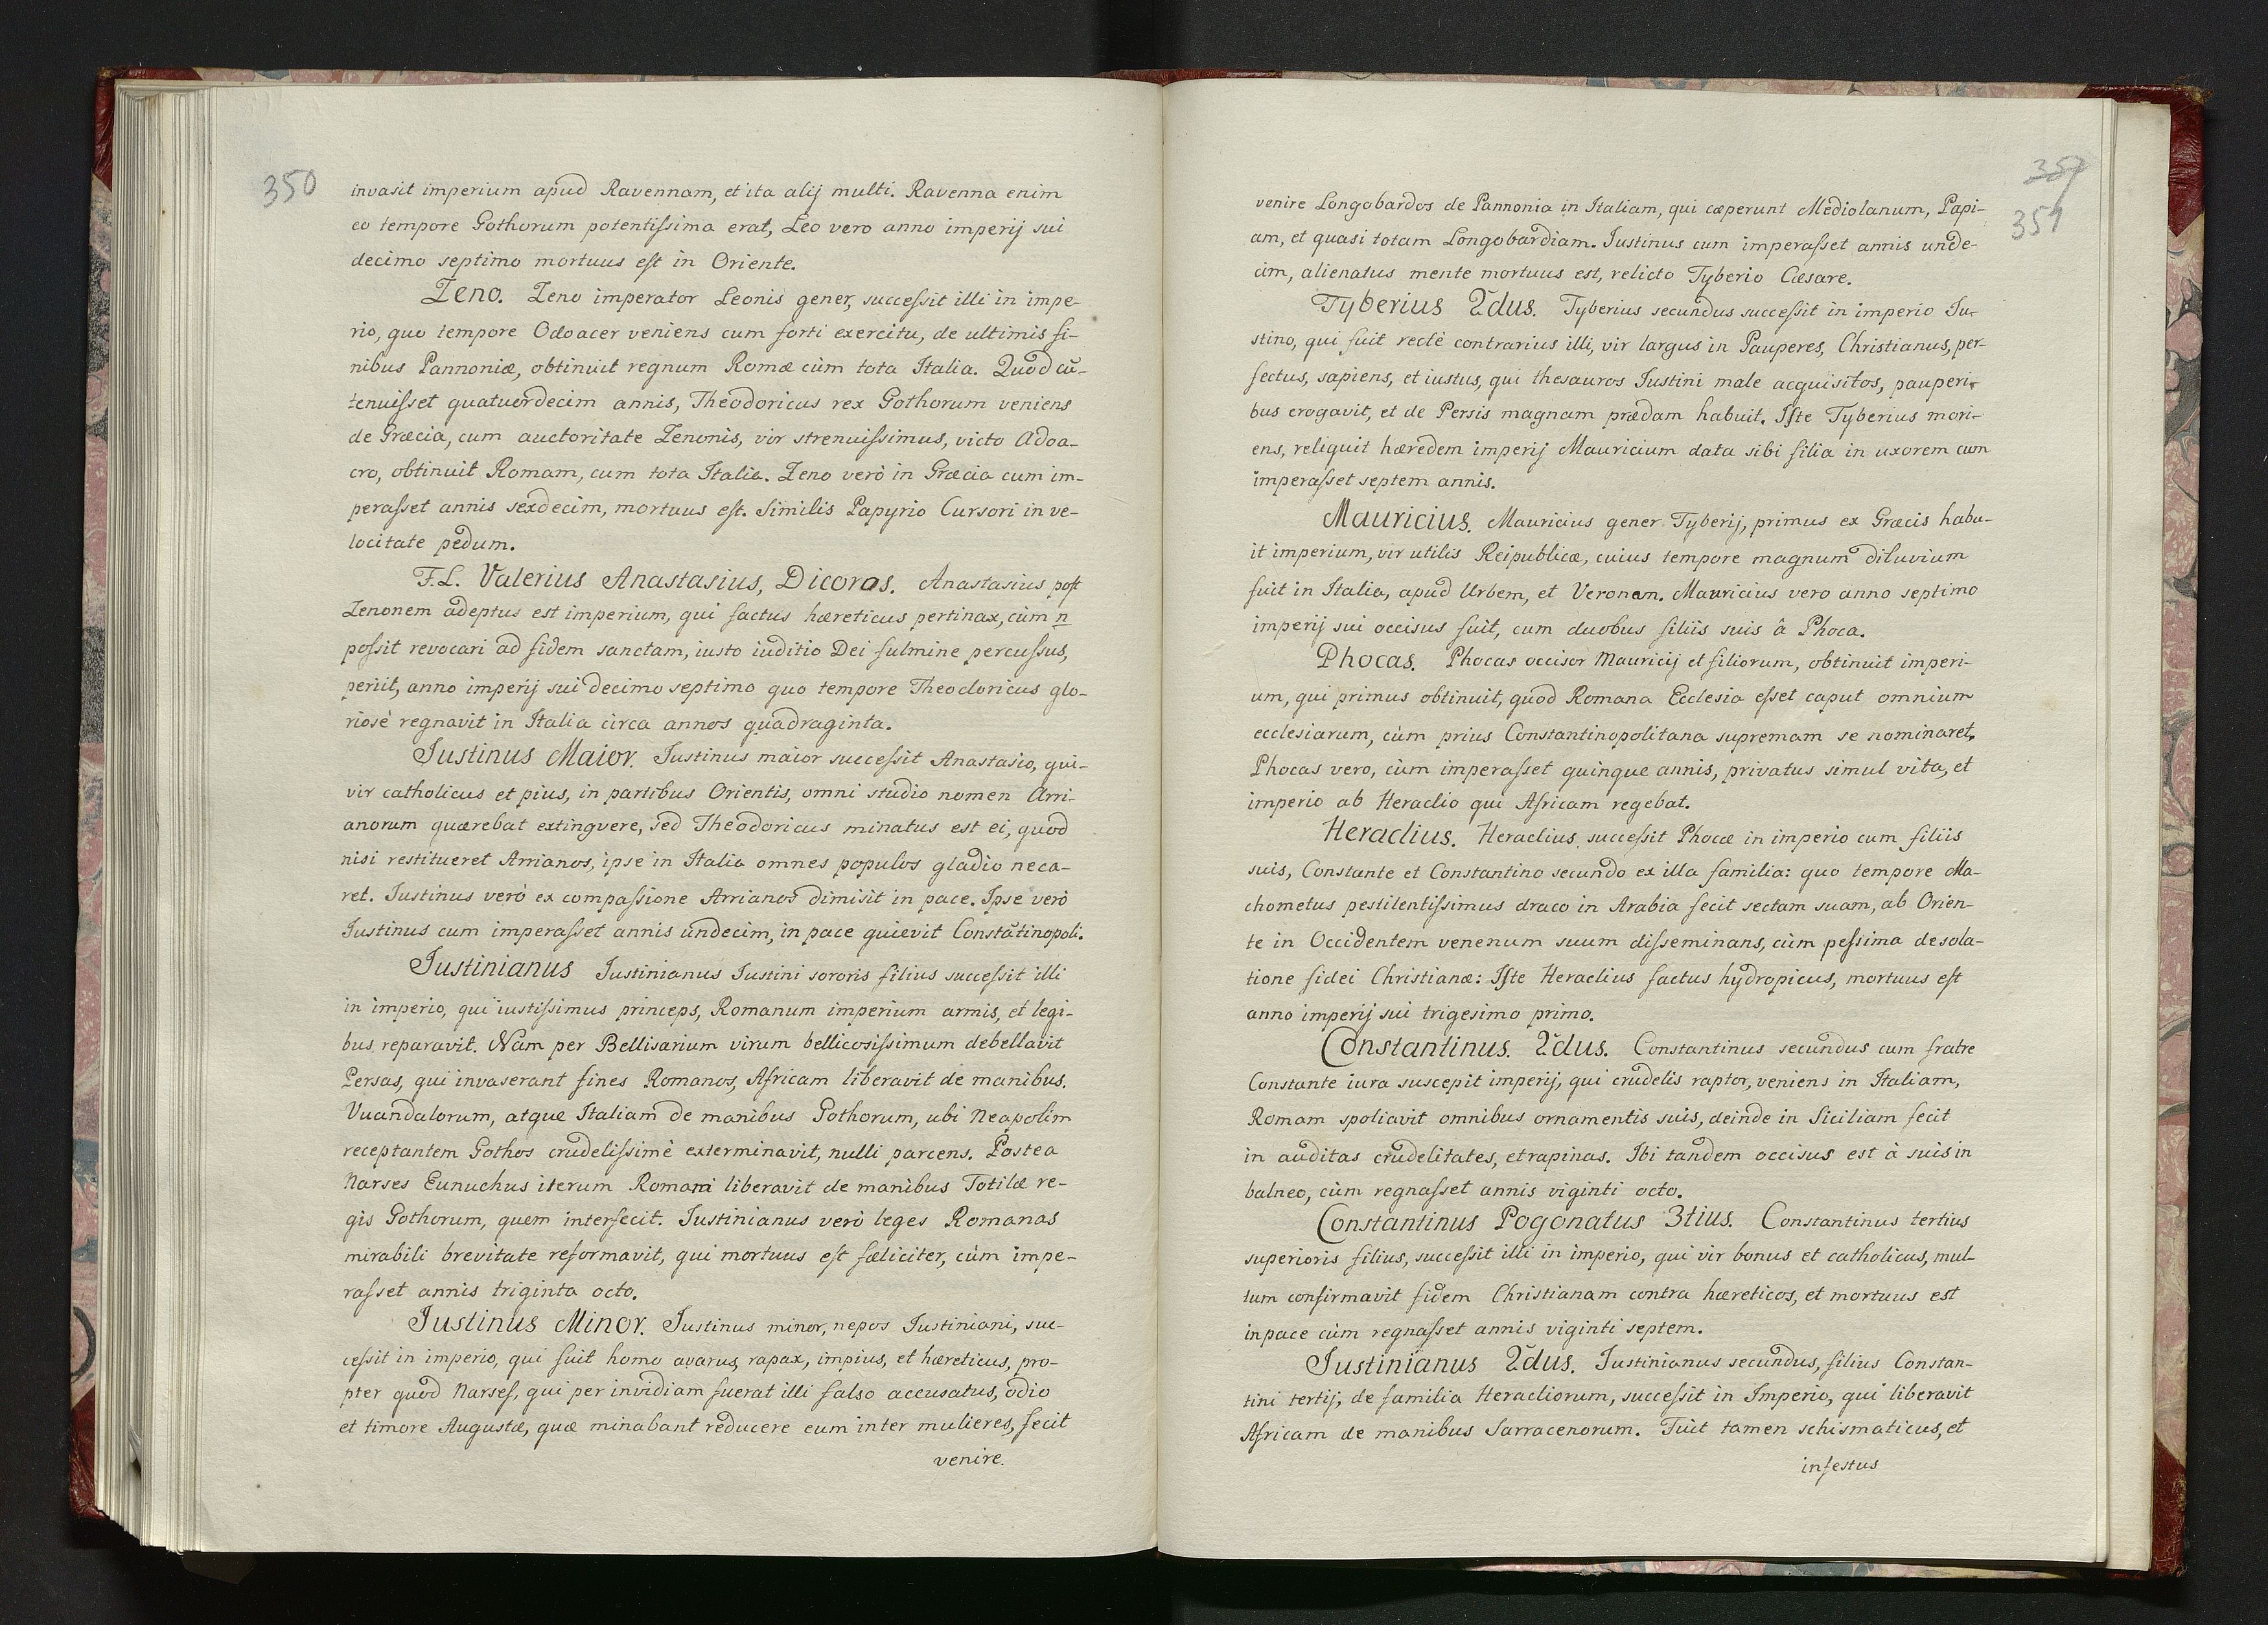 350
invasit imperium apud Ravennam, et ita alij multi. Ravenna enim
eo tempore Gothorum potentissima erat, Leo vero anno imperij sui
decimo septimo mortuus est in Oriente.
Zeno. Zeno imperator Leonis gener, successit illi in impe-
rio, quo tempore Odoacer veniens cum forti exercitu, de ultimis fi-
nibus Pannoniæ, obtinuit regnum Romæ cùm tota Italia. Quod cũ-
tenuisset quatuordecim annis, Theodoricus rex Gothorum veniens
de Græcia, cum auctoritate Zenonis, vir strenuissimus, victo Adoa-
cro, obtinuit Romam, cum tota Italia. Zeno verò in Græcia cum im-
perasset annis sexdecim, mortuus est. Similis Papyrio Cursori in ve-
locitate pedum.
F.L. Valerius Anastasius, Dicoros. Anastasius post
Zenonem adeptus est imperium, qui factus hæreticus pertinax, cùm n̲
possit revocari ad fidem sanctam, iusto iuditio Dei fulmine percussus,
periit, anno imperij sui decimo septimo quo tempore Theodoricus glo-
riosè regnavit in Italia circa annos quadraginta.
Iustinus Maior. Iustinus maior successit Anastasio, qui-
vir catholicus et pius, in partibus Orientis, omni studio nomen Arri-
anorum quærebat extingvere, sed Theodoricus minatus est ei, quod
nisi restitueret Arrianos, ipse in Italia omnes populos gladio neca-
ret. Iustinus verò ex compassione Arrianos dimisit in pace. Ipse verò
Iustinus cum imperasset annis undecim, in pace quievit Constãtinopoli.
Iustinianus Iustinianus Iustini sororis filius successit illi
in imperio, qui iustissimus princeps, Romanum imperium armis, et legi-
bus reparavit. Nam per Bellisarium virum bellicosissimum debellavit
Persas, qui invaserant fines Romanos, Africam liberavit de manibus.
Vuandalorum, atque Italiam de manibus Gothorum, ubi Neapolim
receptantem Gothos crudelissimè exterminavit, nulli parcens. Postea
Narses Eunuchus iterum Romam liberavit de manibus Totilæ re-
gis Gothorum, quem interfecit. Iustinianus verò leges Romanas
mirabili brevitate reformavit, qui mortuus est fæliciter, cùm impe-
rasset annis triginta octo.
Iustinus Minor. Iustinus minor, nepos Iustiniani, suc-
cessit in imperio, qui fuit homo avarus, rapax, impius, et hæreticus, pro-
pter quod Narses, qui per invidiam fuerat illi falso accusatus, odio
et timore Augustæ, quæ minabant reducere eum inter mulieres, fecit
venire.
357
351
venire Longobardos de Pannonia in Italiam, qui cæperunt Mediolanum, Papi-
am, et quasi totam Longobardiam. Iustinus cum imperasset annis unde-
cim, alienatus mente mortuus est, relicto Tyberio Cæsare.
Tyberius 2dus. Tyberius secundus successit in imperio Iu-
stino, qui fuit rectè contrarius illi, vir largus in Pauperes, Christianus, per-
fectus, sapiens, et iustus, qui thesauros Iustini male acquisitos, pauperi-
bus erogavit, et de Persis magnam prædam habuit. Iste Tyberius mori-
ens, reliquit hæredem imperij Mauricium data sibi filia in uxorem cum
imperasset septem annis.
Mauricius. Mauricius gener Tyberij, primus ex Græcis habu-
it imperium, vir utilis Reipublicæ, cuius tempore magnum diluvium
fuit in Italia, apud Urbem, et Veronam. Mauricius vero anno septimo
imperij sui occisus fuit, cum duobus filiis suis â Phoca.
Phocas. Phocas occisor Mauricij et filiorum, obtinuit imperi-
um, qui primus obtinuit, quod Romana Ecclesia esset caput omnium
ecclesiarum, cùm prius Constantinopolitana supremam se nominaret.
Phocas vero, cùm imperasset quinque annis, privatus simul vita, et
imperio ab Heraclio qui Africam regebat.
Heraclius. Heraclius successit Phocæ in imperio cum filiis
suis, Constante et Constantino secundo ex illa familia: quo tempore Ma-
chometus pestilentissimus draco in Arabia fecit sectam suam, ab Orien-
te in Occidentem venenum suum disseminans, cùm pessima desola-
tione fidei Christianæ: Iste Heraclius factus hydropicus, mortuus est
anno imperij sui trigesimo primo.
Constantinus. 2dus. Constantinus secundus cum fratre
Constante iura suscepit imperij, qui crudelis raptor, veniens in Italiam,
Romam spoliavit omnibus ornamentis suis, deinde in Siciliam fecit
in auditas crudelitates, et rapinas. Ibi tandem occisus est à suis in
balneo, cùm regnasset annis viginti octo.
Constantinus Pogonatus 3tius. Constantinus tertius
superioris filius, successit illi in imperio, qui vir bonus et catholicus, mul-
tum confirmavit fidem Christianam contra hæreticos, et mortuus est
in pace cùm regnasset annis viginti septem.
Iustinianus 2dus. Iustinianus secundus, filius Constan-
tini tertij, de familia Heracliorum, successit in Imperio, qui liberavit
Africam de manibus Sarracenorum. Fuit tamen schismaticus, et
infestus